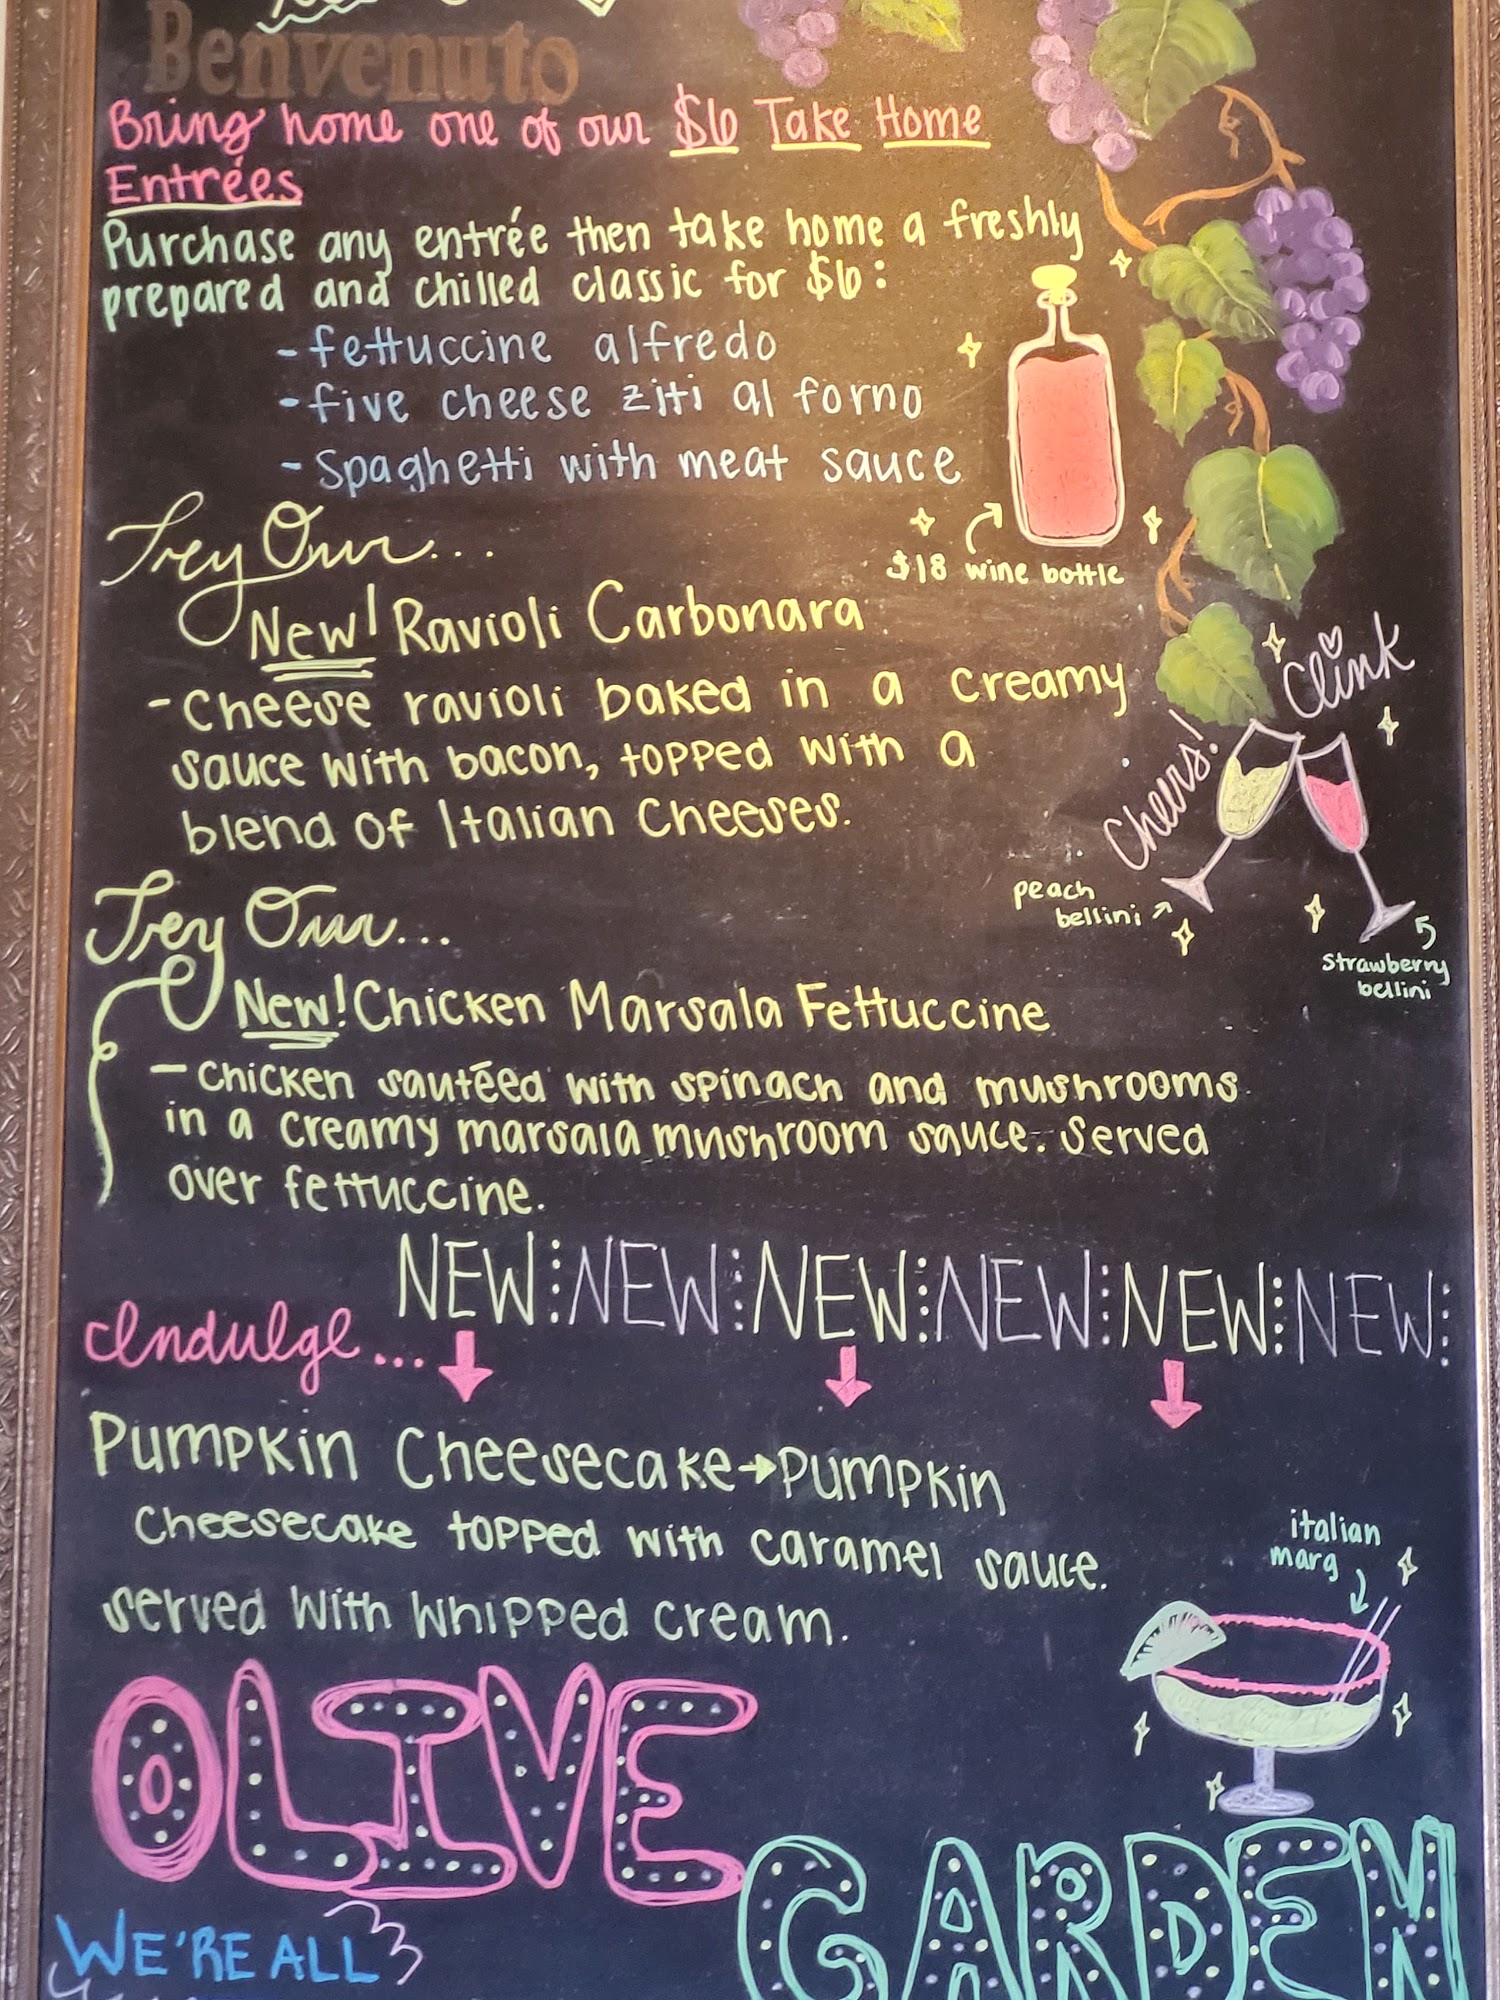 Benvenuto
Bring home one of our $6 Take Home
Entrées
Purchase any entrée then take home a freshly
prepared and chilled classic for $6:
- fettuccine alfredo
- five cheese ziti al forno
- Spaghetti with meat sauce
$18 wine bottle
Try Our...
New! Ravioli Carbonara
- Cheese ravioli baked in a creamy
sauce with bacon, topped with a
blend of Italian Cheeses.
Clink
Cheers!
peach
bellini
strawberry
bellini
Try Our...
New! Chicken Marsala Fettuccine
- Chicken sautéed with spinach and mushrooms
in a creamy marsala mushroom sauce. Served
over fettuccine.
NEW NEW NEW NEW NEW NEW
Indulge...
Pumpkin Cheesecake → Pumpkin
Cheesecake topped with caramel sauce.
served with whipped cream.
italian
marg
OLIVE
GARDEN
WE'RE ALL